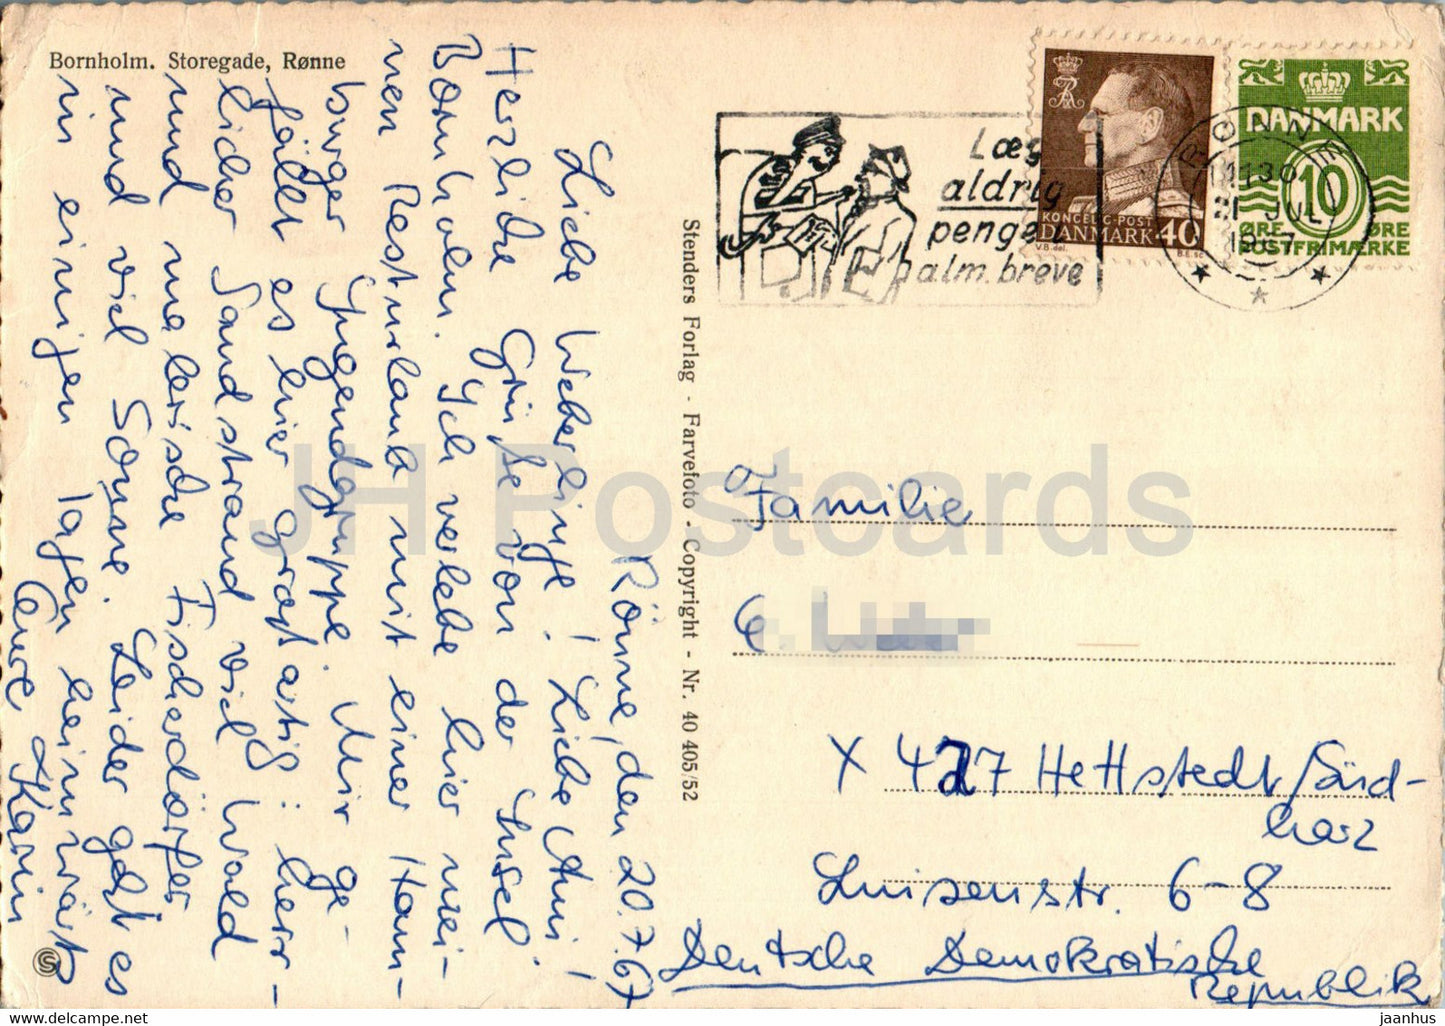 Bornholm. Storegade, Rønne
Rönne, den 20.7.67
Liebe Weberlinge! Liebe Anni!
Herzliche Grüße von der Insel
Bornholm. Ich verlebe hier mei-
nen Resturlaub mit einer Ham-
burger Jugendgruppe. Mir ge-
fällt es hier großartig: herr-
licher Sandstrand viel Wald
und malerische Fischerdörfer
und viel Sonne. Leider geht es
in einigen Tagen heimwärts
Eure Karin
Stenders Forlag - Farvefoto - Copyright - Nr. 40 405/52
Læg
aldrig
penge i
alm. breve
KONGELIG POST
DANMARK 40
V.B. del.
B.E. sc
RØNNE
1130
21 JUL
1967
DANMARK
10
ØRE ØRE
POSTFRIMÆRKE
Familie
X 427 Hettstedt/Süd-
harz
Luisenstr. 6-8
Deutsche Demokratische
Republik
JH Postcards
jaanhus